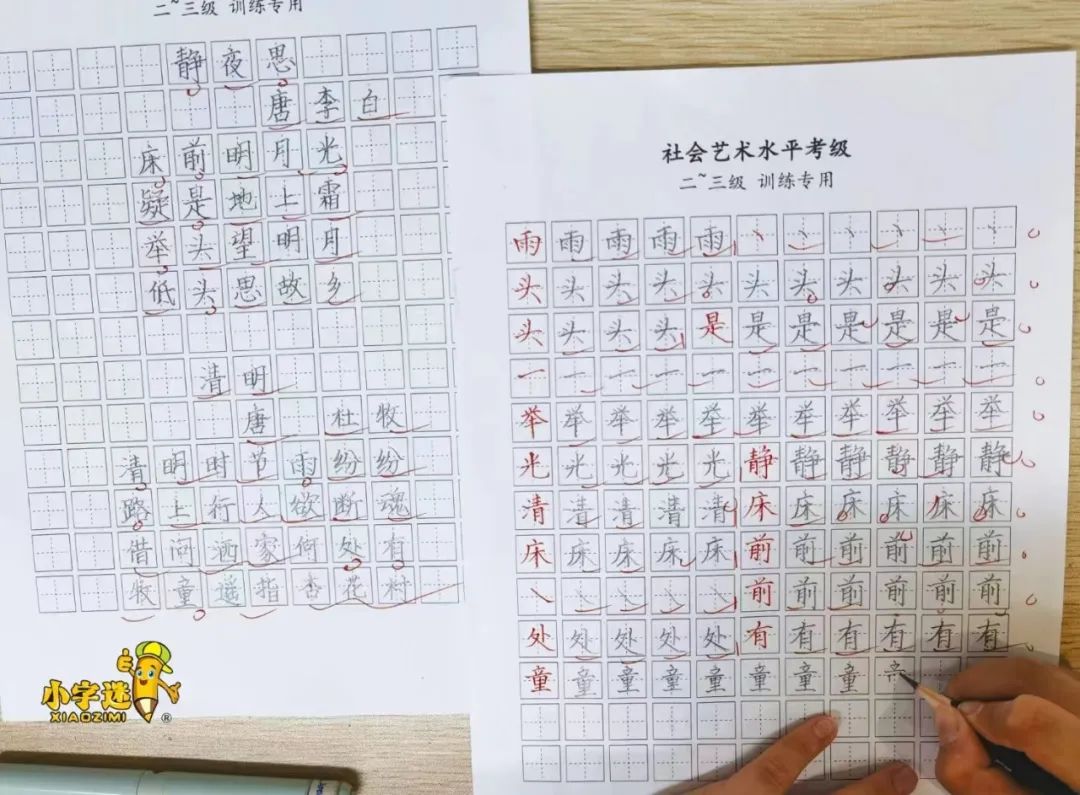 二~三级 训练专用
静夜思
唐李白
床前明月光
疑是地上霜
举头望明月
低头思故乡
清明
唐 杜牧
清明时节雨纷纷
路上行人欲断魂
借问酒家何处有
牧童遥指杏花村
小字迷
XIAOZIMI ®
社会艺术水平考级
二~三级 训练专用
雨雨雨雨雨丶丶丶丶丶丶
头头头头头头头头头头头
头头头头是是是是是是是
一一一一一一一一一一一
举举举举举举举举举举举
光光光光光静静静静静静
清清清清清床床床床床床
床床床床床前前前前前前
丶丶丶丶丶前前前前前前
处处处处处有有有有有有
童童童童童童童童